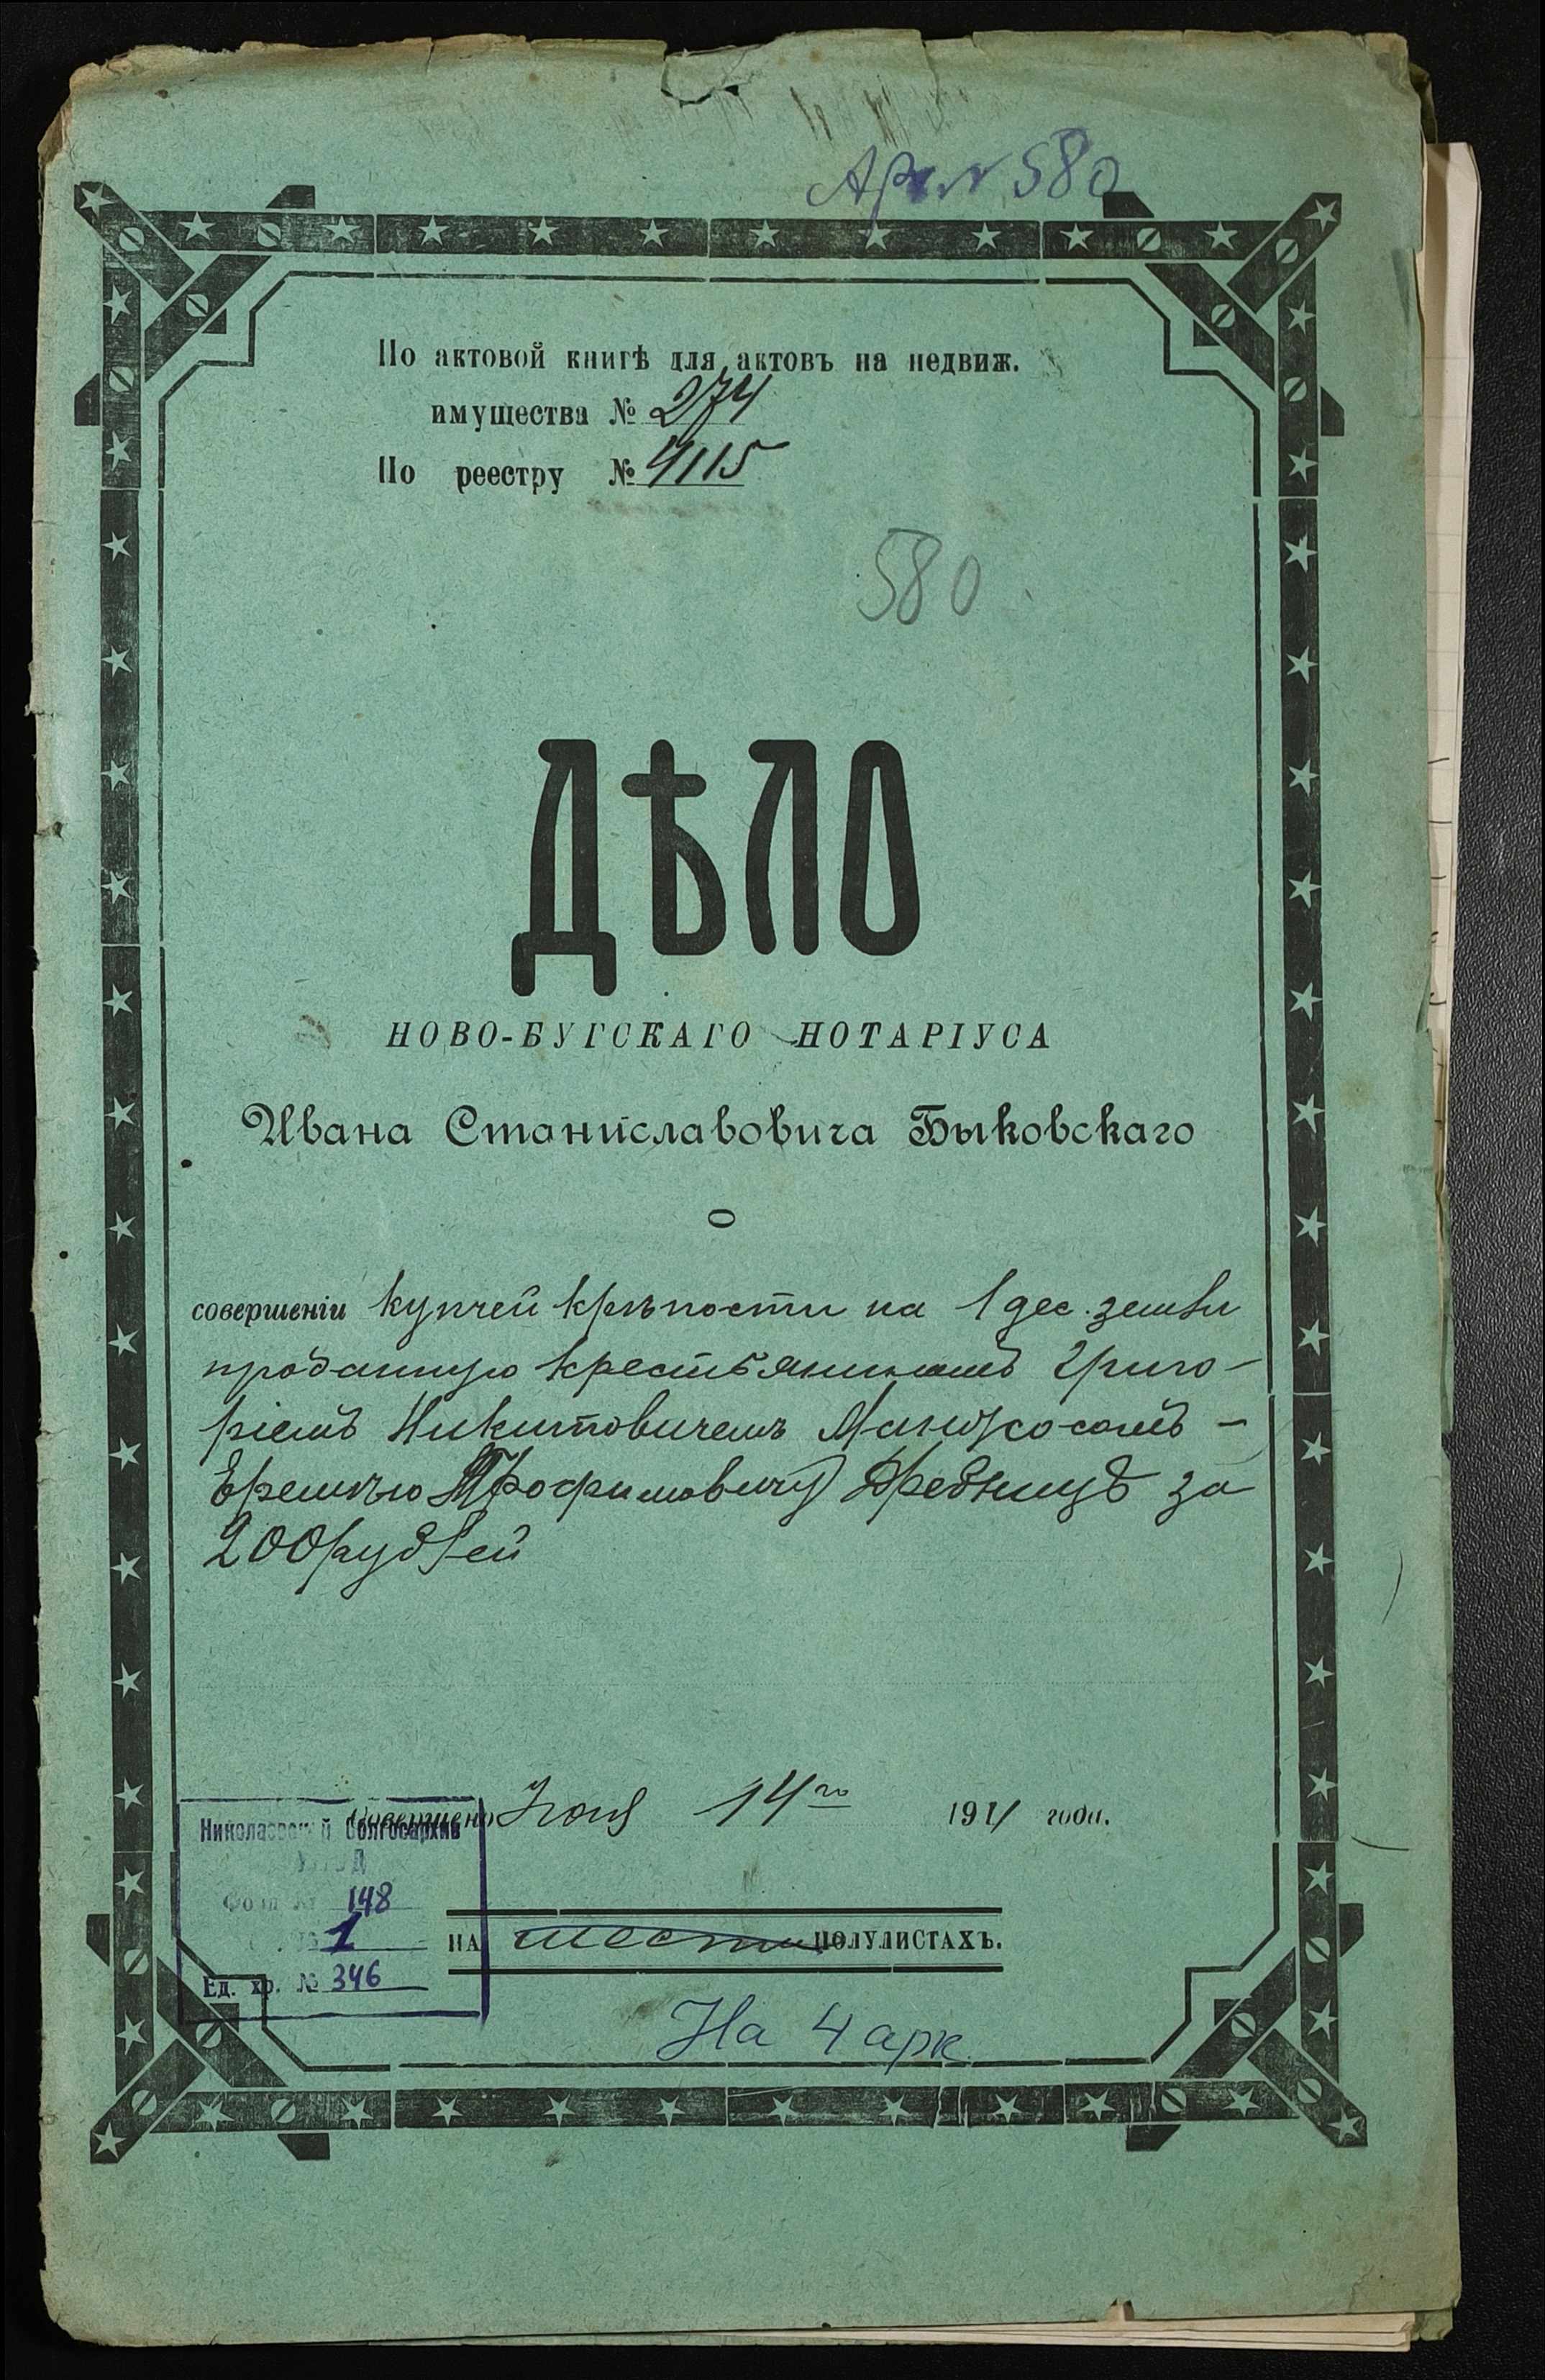 Арх № 580
По актовой книгѣ для актовъ на недвиж.
имущества № 274
По реестру № 4115
580
ДѢЛО
НОВО-БУГСКАГО НОТАРІУСА
Ивана Станиславовича Быковскаго
О
совершеніи купчей крѣпости на 1 дес. земли
проданную крестьяниномъ Григо-
ріемъ Никитовичемъ
Еремѣю Трофимовичу за
200 рублей
Совершено 14го 1911 года.
Николаевский Облгосархив
Фонд № 148
1
Ед. хр. № 346
НА шести ПОЛУЛИСТАХЪ.
На 4 арк.